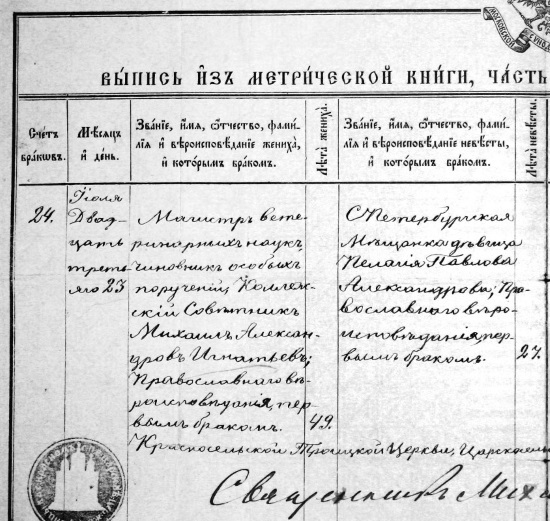 ВЫПИСЬ ИЗЪ МЕТРИЧЕСКОЙ КНИГИ, ЧАСТЬ
Счетъ браковъ.
Мѣсяцъ и день.
Званіе, имя, отчество, фами-
лія и вѣроисповѣданіе жениха,
и которымъ бракомъ.
Лѣта жениха.
Званіе, имя, отчество, фами-
лія и вѣроисповѣданіе невѣсты,
и которымъ бракомъ.
Лѣта невѣсты.
24.
Іюля
Двад
цать
треть
яго 23
Магистръ вете-
ринарныхъ наукъ,
чиновникъ особыхъ
порученій, Коллеж-
скій Совѣтникъ
Михаилъ Алексан-
дровъ Игнатьевъ;
Православнаго вѣ-
роисповѣданія, пер
вымъ бракомъ.
49.
СПетербургская
Мѣщанка дѣвица
Пелагія Павлова
Александрова; Пра-
вославнаго вѣро-
исповѣданія, пер-
вымъ бракомъ.
27.
Красносельской Троицкой Церкви, Царскосель
Священникъ Миха